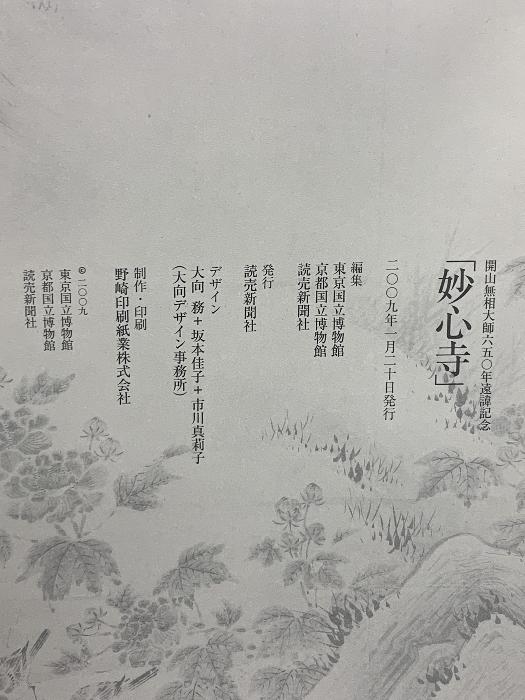 開山無相大師六五〇年遠諱記念
「妙心寺」
二〇〇九年一月二十日発行
編集
東京国立博物館
京都国立博物館
読売新聞社
発行
読売新聞社
デザイン
大向 務+坂本佳子+市川真莉子
(大向デザイン事務所)
制作・印刷
野崎印刷紙業株式会社
© 二〇〇九
東京国立博物館
京都国立博物館
読売新聞社